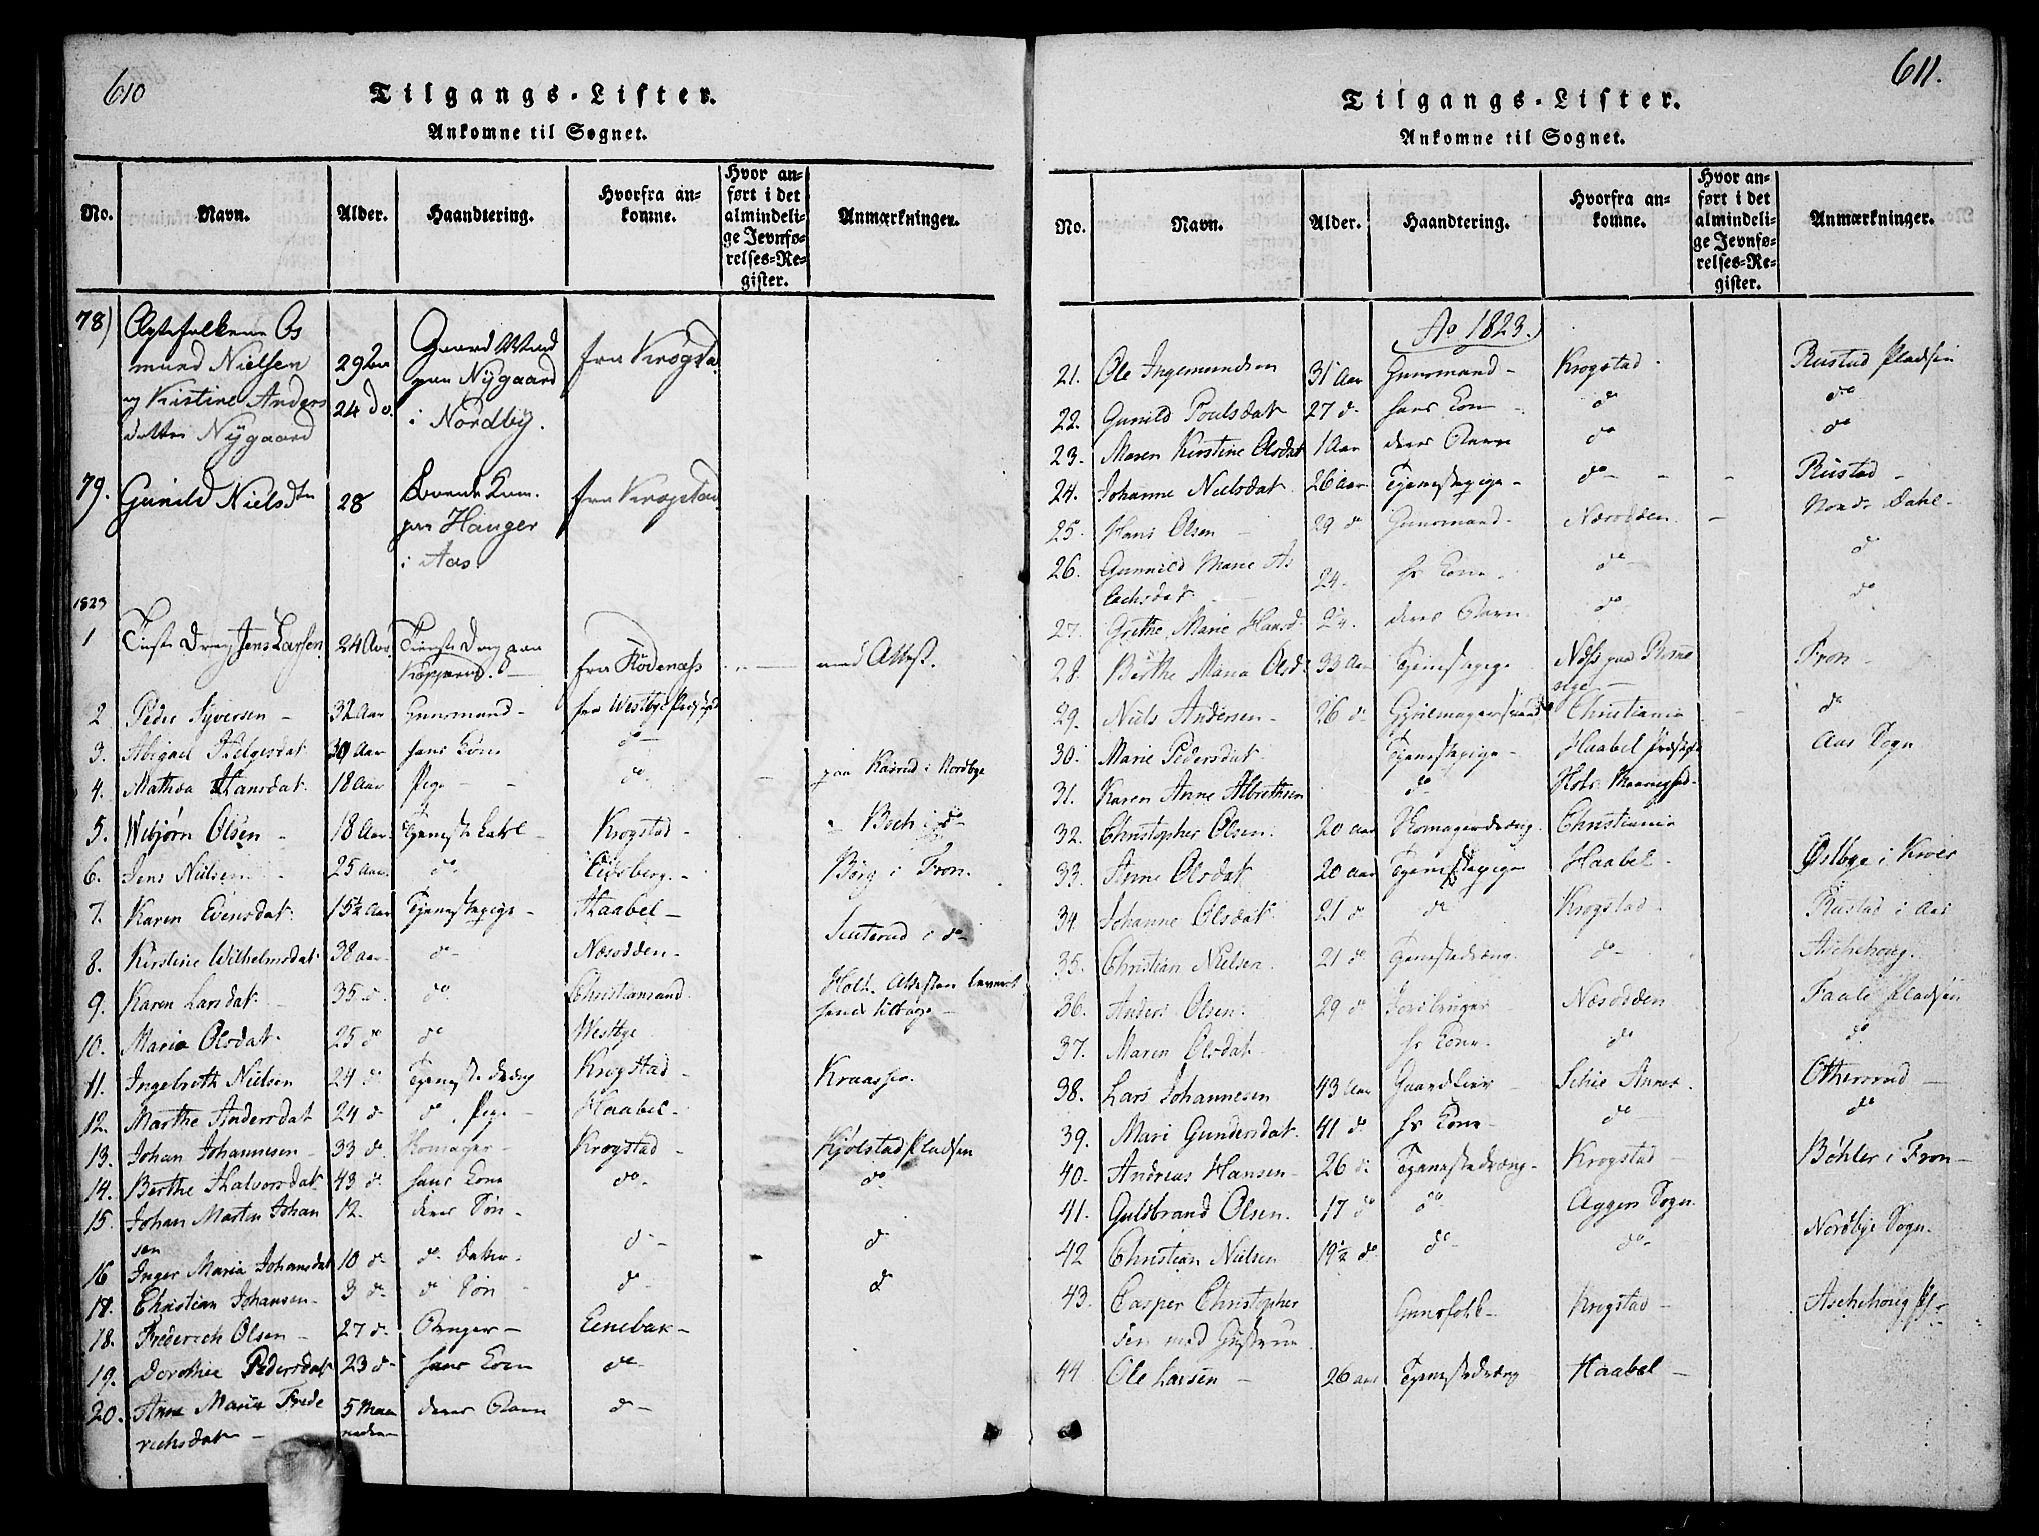 610
Tilgangs-Lister.
Ankomne til Sognet.
No. Navn. Alder. Haandtering. Hvorfra ankomne. Hvor anført i det almindelige Jevnførelses-Register. Anmærkninger.
78) Ægtefolkene Os
mund Nielsen 29 Aar Gaard paa Nygaard fra Krogstad
og Kirstine Anders 24 do. i Nordby.
datter Nygaard
79. Gunild Nielsdtr 28 paa Hauger i Aas. fra Krogstad
1823
1 Jens Larsen 24 Aar fra Rødenæss med Attest.
2 Peder Syversen - 32 Aar Huusmand - fra Westbye Præstegield
3. Abigael Helgesdat. 30 Aar hans Kone do
4. Mathea Hansdat. 18 Aar Pige - do. paa Kaxrud i Nordbye
5. Webjørn Olsen - 18 Aar. Tjenestekarl - Krogstad - Boch i do
6. Jens Nielsen - 25 Aar. do. Eidsberg. - Børg i Fron.
7. Karen Evensdat. 15½ Aar Tjenestepige - Haabel -
8. Kirstine Wilhelmsdat 38 aar do - Nesodden - i do -
9. Karen Larsdat. 35 do. do. Christiansand Holt. Attesten levert
hende tilbage -
10. Maria Olsdat. 25 do do Westbye
11. Ingebreth Nielsen 24 do Tjenestedreng Krogstad - Kraasse.
12. Marthe Andersdat 24 do do Pige - Haabel -
13. Johan Johannesen - 33 do. Skomager - Krogstad - Kjølstad Pladsen
14. Berthe Halvorsdat. 43 do. hans Kone do. do
15. Johan Martin Johan 12. deres Søn.
sen do - do
16 Inger Maria Johansdat 10 do do. Datter. do - do
17. Christian Johansen - 3 do do Søn
18. Frederich Olsen - 27 do. - Eenebak -
19. Dorothee Pedersdat 23 do - hans Kone do -
20. Anne Maria Frede 5 Maa deres Barn do -
richsdat - neder
611.
Tilgangs-Lister.
Ankomne til Sognet.
No. Navn. Alder. Haandtering. Hvorfra ankomne. Hvor anført i det almindelige Jevnførelses-Register. Anmærkninger.
Ao 1823.
21. Ole Ingemundsen 31 Aar Huusmand - Krogstad - Rustad Pladsen
22. Gunild Poulsdat 27 do hans Kone - do do
23. Maren Kirstine Olsdat 1 Aar deres Barn do do
24. Johanne Nielsdat 26 Aar Tjenestepige - do - - - Rustad -
25. Hans Olsen - 29 do Huusmand - Næsodden - Nordr Dahl -
26. Gunnild Marie As 24. hs Kone - do - do
lachsdat -
27. Grethe Marie Hansd. 2¼ deres Barn do do
28. Berthe Maria Olsd. 33 Aar Tjenestepige Næss paa Rome Fron -
rige -
29. Niels Andersen - 26 do Christiania do
30. Marie Pedersdat. Tjenestepige - Haabel Præstegj. Aas Sogn
31. Karen Anne Albrethsen do -
32. Christopher Olsen. 20 aar Skomagerdreng Christiania
33. Anne Olsdat 20 aar Tjenestepige Haabel. Østbye i Kroer
34. Johanne Olsdat 21 do do Krogstad - Rustad i Aas
35. Christian Nielsen. 21 do Tjenestedreng do - Aschehoug.
36. Anders Olsen. 29 do Jordbruger Næsodden Faale Pladsen
37. Maren Olsdat - hs Kone - do do
38. Lars Johannesen 43 Aar Gaardleier - Schie Annex. Othersrud -
39. Mari Gundersdat. 41 do hs Kone - do - do
40. Andreas Hansen - 26 do Tjenestedreng - Krogstad - Bøhler i Fron -
41. Guldbrand Olsen. 17 do do Aggers Sogn.
42 Christian Nielsen 19½ do do - do - Nordbye Sogn.
43. Casper Christopher Huusfolk - Krogstad - Aschehoug Pl.
sen med Hustrue.
44 Ole Larsen - 26 aar Tjenestedreng Haabel -